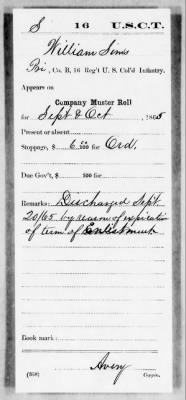 S | 16 | U.S.C.T.
William Sims
Pvt., Co. B, 16 Reg't U. S. Col'd Infantry.
Appears on
Company Muster Roll
for Sept & Oct, 1865
Present or absent
Stoppage, $ 6.00 100 for Ord.
Due Gov't, $ 100 for
Remarks: Discharged Sept
20/65 by reason of expiration
of term of Enlistment
Book mark:
Avery
(358) Copyist.